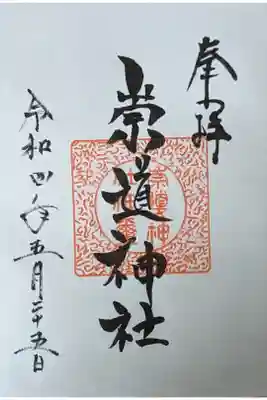 奉拝
崇道神社
令和四年五月二十五日